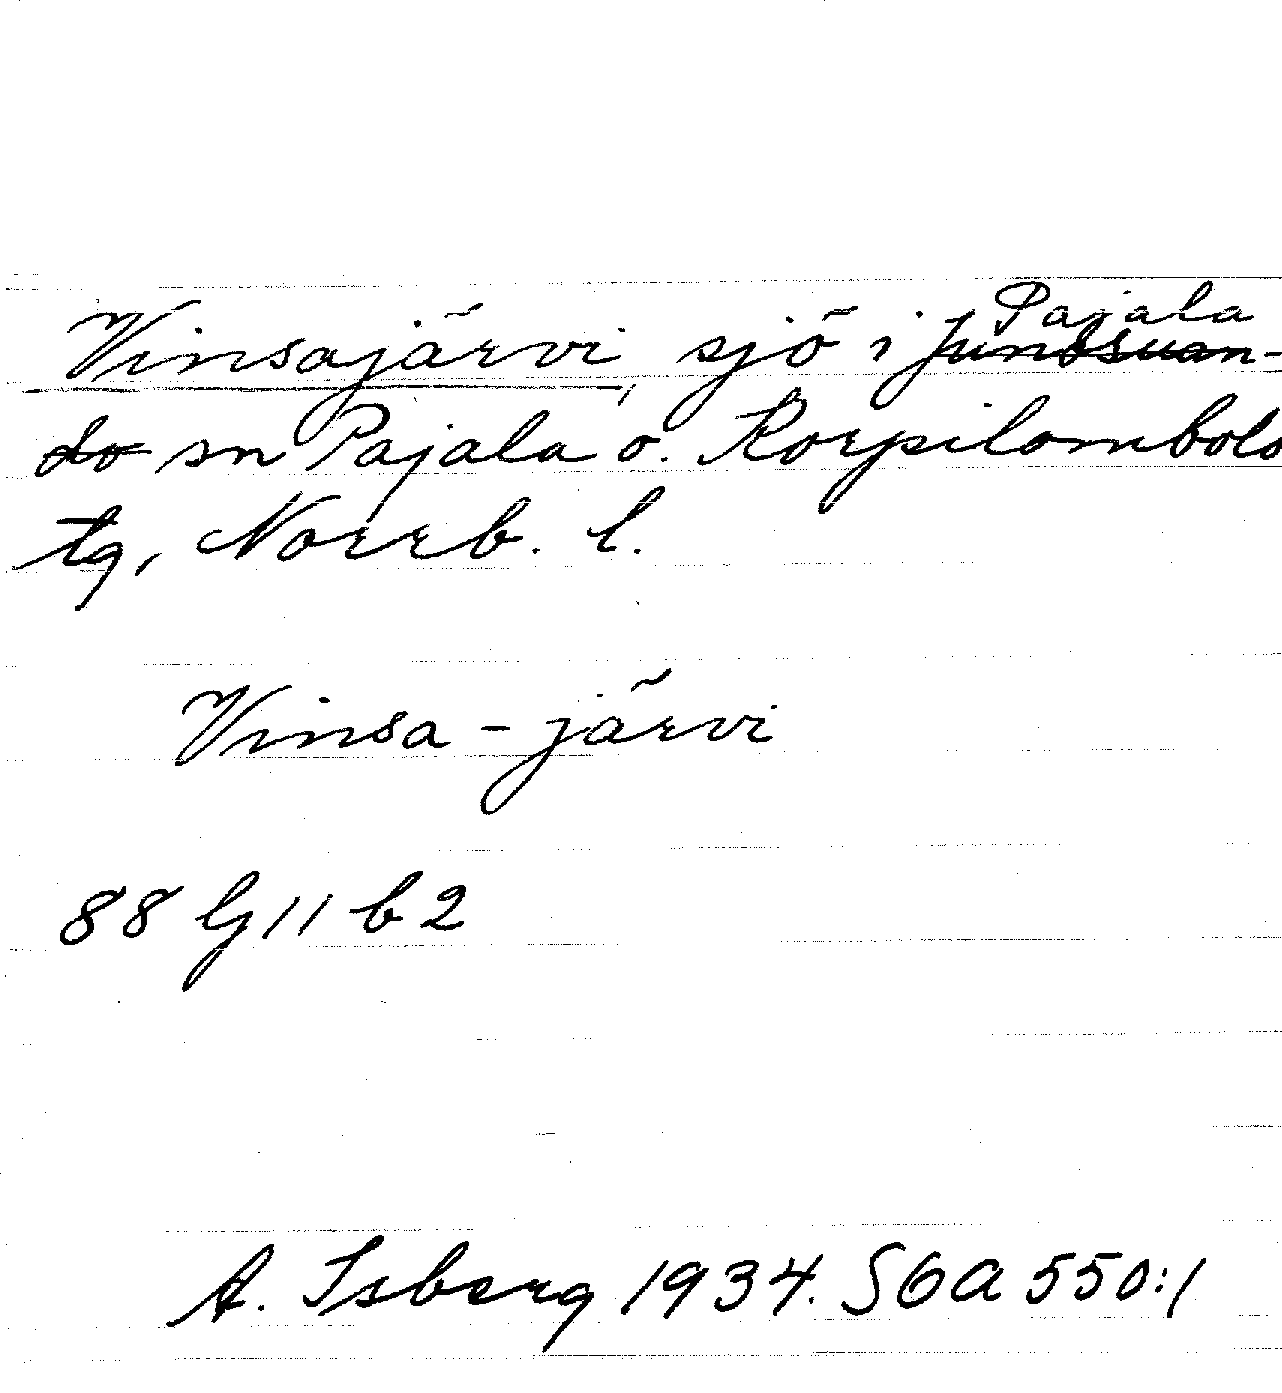 Vinsajärvi, sjö i Junosuan- Pajala
do sn Pajala o. Korpilombolo
tg, Norrb. l.
Vinsa - järvi
88 G 11 b 2
A. Isberg 1934. SOA 550:1